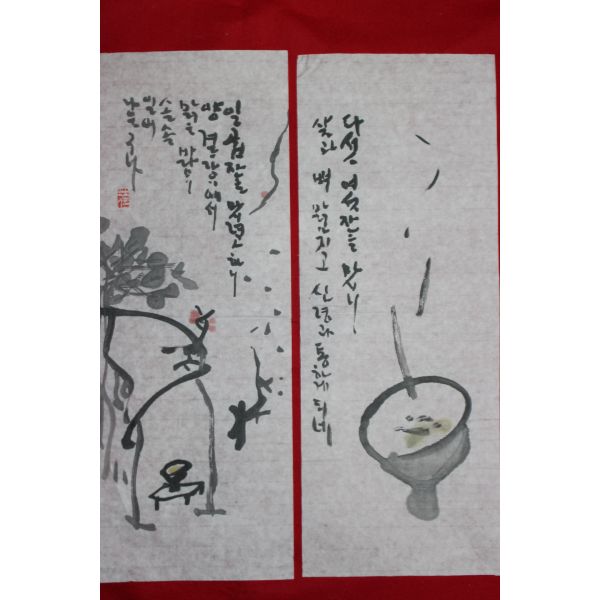 다섯 여섯잔을 마시니
살과 뼈 맑아지고 신령과 통하게 되네
일곱잔을 마셨으니
양 겨랑에서
맑은 바람이
솔솔
일어
나는구나